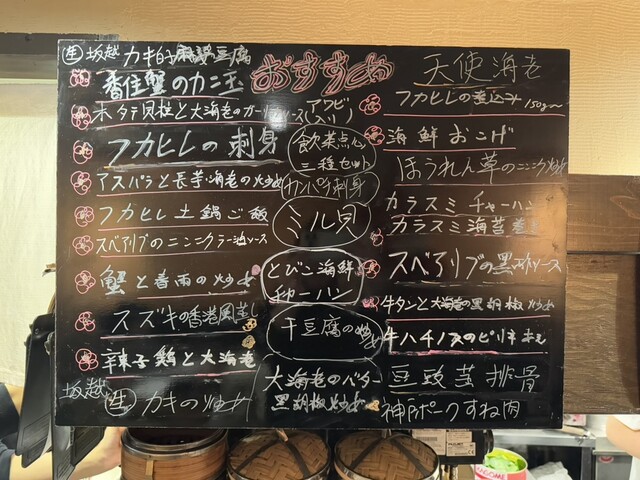 生 坂越 カキ的麻婆豆腐
香住蟹のカニ玉
ホタテ貝柱と大海老のガーリックソース
フカヒレの刺身
アスパラと長芋海老の炒め
フカヒレ土鍋ご飯
スペアリブのニンニクラー油ソース
蟹と春雨の炒め
スズキの香港風蒸し
辣子鶏と大海老
坂越 生 カキの炒め
おすすめ
アワビ
入り
飲茶点心
三種セット
カンパチ刺身
ミル貝
とびこ海鮮
チャーハン
干豆腐の炒め
大海老のバター
黒胡椒炒め
天使海老
フカヒレの煮込み 150g〜
海鮮おこげ
ほうれん草のニンニク炒め
カラスミチャーハン
カラスミ海苔巻き
スペアリブの黒酢ソース
牛タンと大海老の黒胡椒炒め
牛ハチノスのピリ辛
豆豉蒸排骨
神戸ポークすね肉